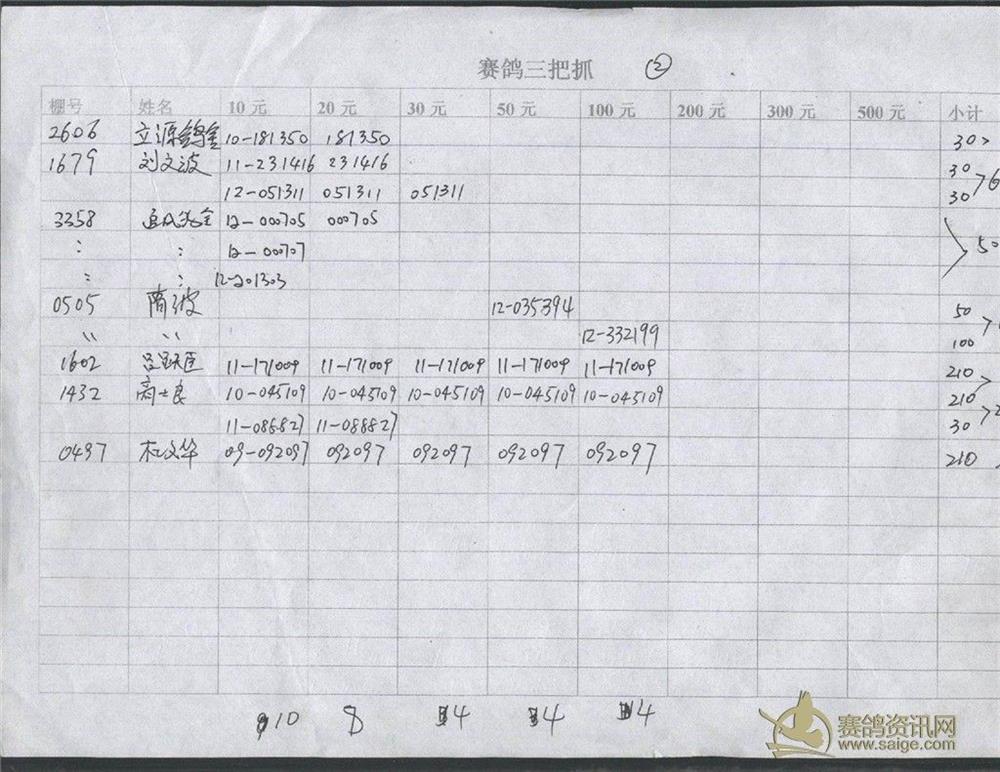 赛鸽三把抓 ②
棚号 姓名 10 元 20 元 30 元 50 元 100 元 200 元 300 元 500 元 小计
2606 立源鸽舍 10-181350 181350 30
1679 刘文波 11-231416 231416 30
12-051311 051311 051311 30
3358 12-000705 000705
: : 12-000707 50
: : 12-201303
0505 商波 12-035394 50
〃 〃 12-332199 100
1602 11-171009 11-171009 11-171009 11-171009 11-171009 210
1432 商士良 10-045109 10-045109 10-045109 10-045109 10-045109 210
11-088827 11-088827 30
0497 杜文华 09-092097 092097 092097 092097 092097 210
10 8 4 4 4
赛鸽资讯网
www.saige.com